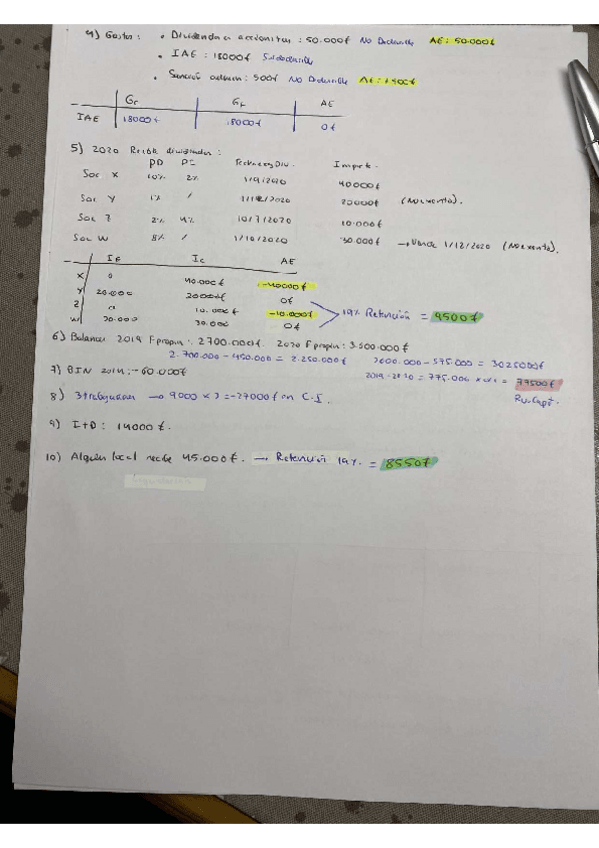 4) Gastos: • Dividendo a accionistas: 50.000€ No Deducible AE: 50.000€
• IAE: 18000€ Si deducible
• Sanción admin: 500€ No Deducible AE: + 500€
Gc Gf AE
IAE 18000€ 18000€ 0€
5) 2020 Recibe dividendos:
PD Fecha reg Div. Importe
Soc X 10% 2% 1/9/2020 40000€
Soc Y 1% / 1/12/2020 20000€ (No exenta).
Soc Z 2% 4% 10/7/2020 10.000€
Soc W 8% / 1/10/2020 30.000€ → Vende 1/12/2020 (No exenta).
If Ic AE
X 0 40.000€ -40000€
Y 20.000 20000€ 0€
Z 0 10.000€ -10.000€ 19% Retención = 9500€
W 30.000 30.000 0€
6) Balances 2019 F propin: 2.700.000€. 2020 F propin: 3.500.000€
2.700.000 - 450.000 = 2.250.000€ 3600.000 - 575.000 = 3025000€
7) BIN 2014: -60.000€ 2019-2020 = 775.000 = 77500€
8) 3 trabajaran → 9000 x 3 = -27000€ en C.I. Rv. Capt.
9) I+D: 14000€.
10) Alquiler local recibe 45.000€. → Retención 19%. = 8550€